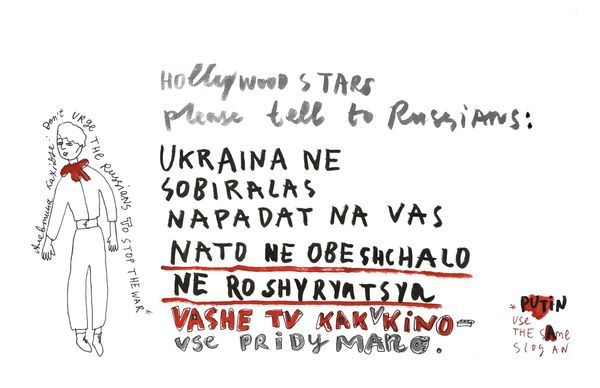 Алевтина Кахідзе: Don't URGE THE RUSSIANS TO STOP THE WAR *
HOllyWOOD STARS
please tell to RUSSIANS:
UKRAINA NE
SOBIRALAS
NAPADAT NA VAS
NATO NE OBESHCHALO
NE ROSHYRYATSYA
VASHE TV KAK V KINO-
VSE PRIDYMANO.
* PUTIN
USE
THE SAME
SLOGAN